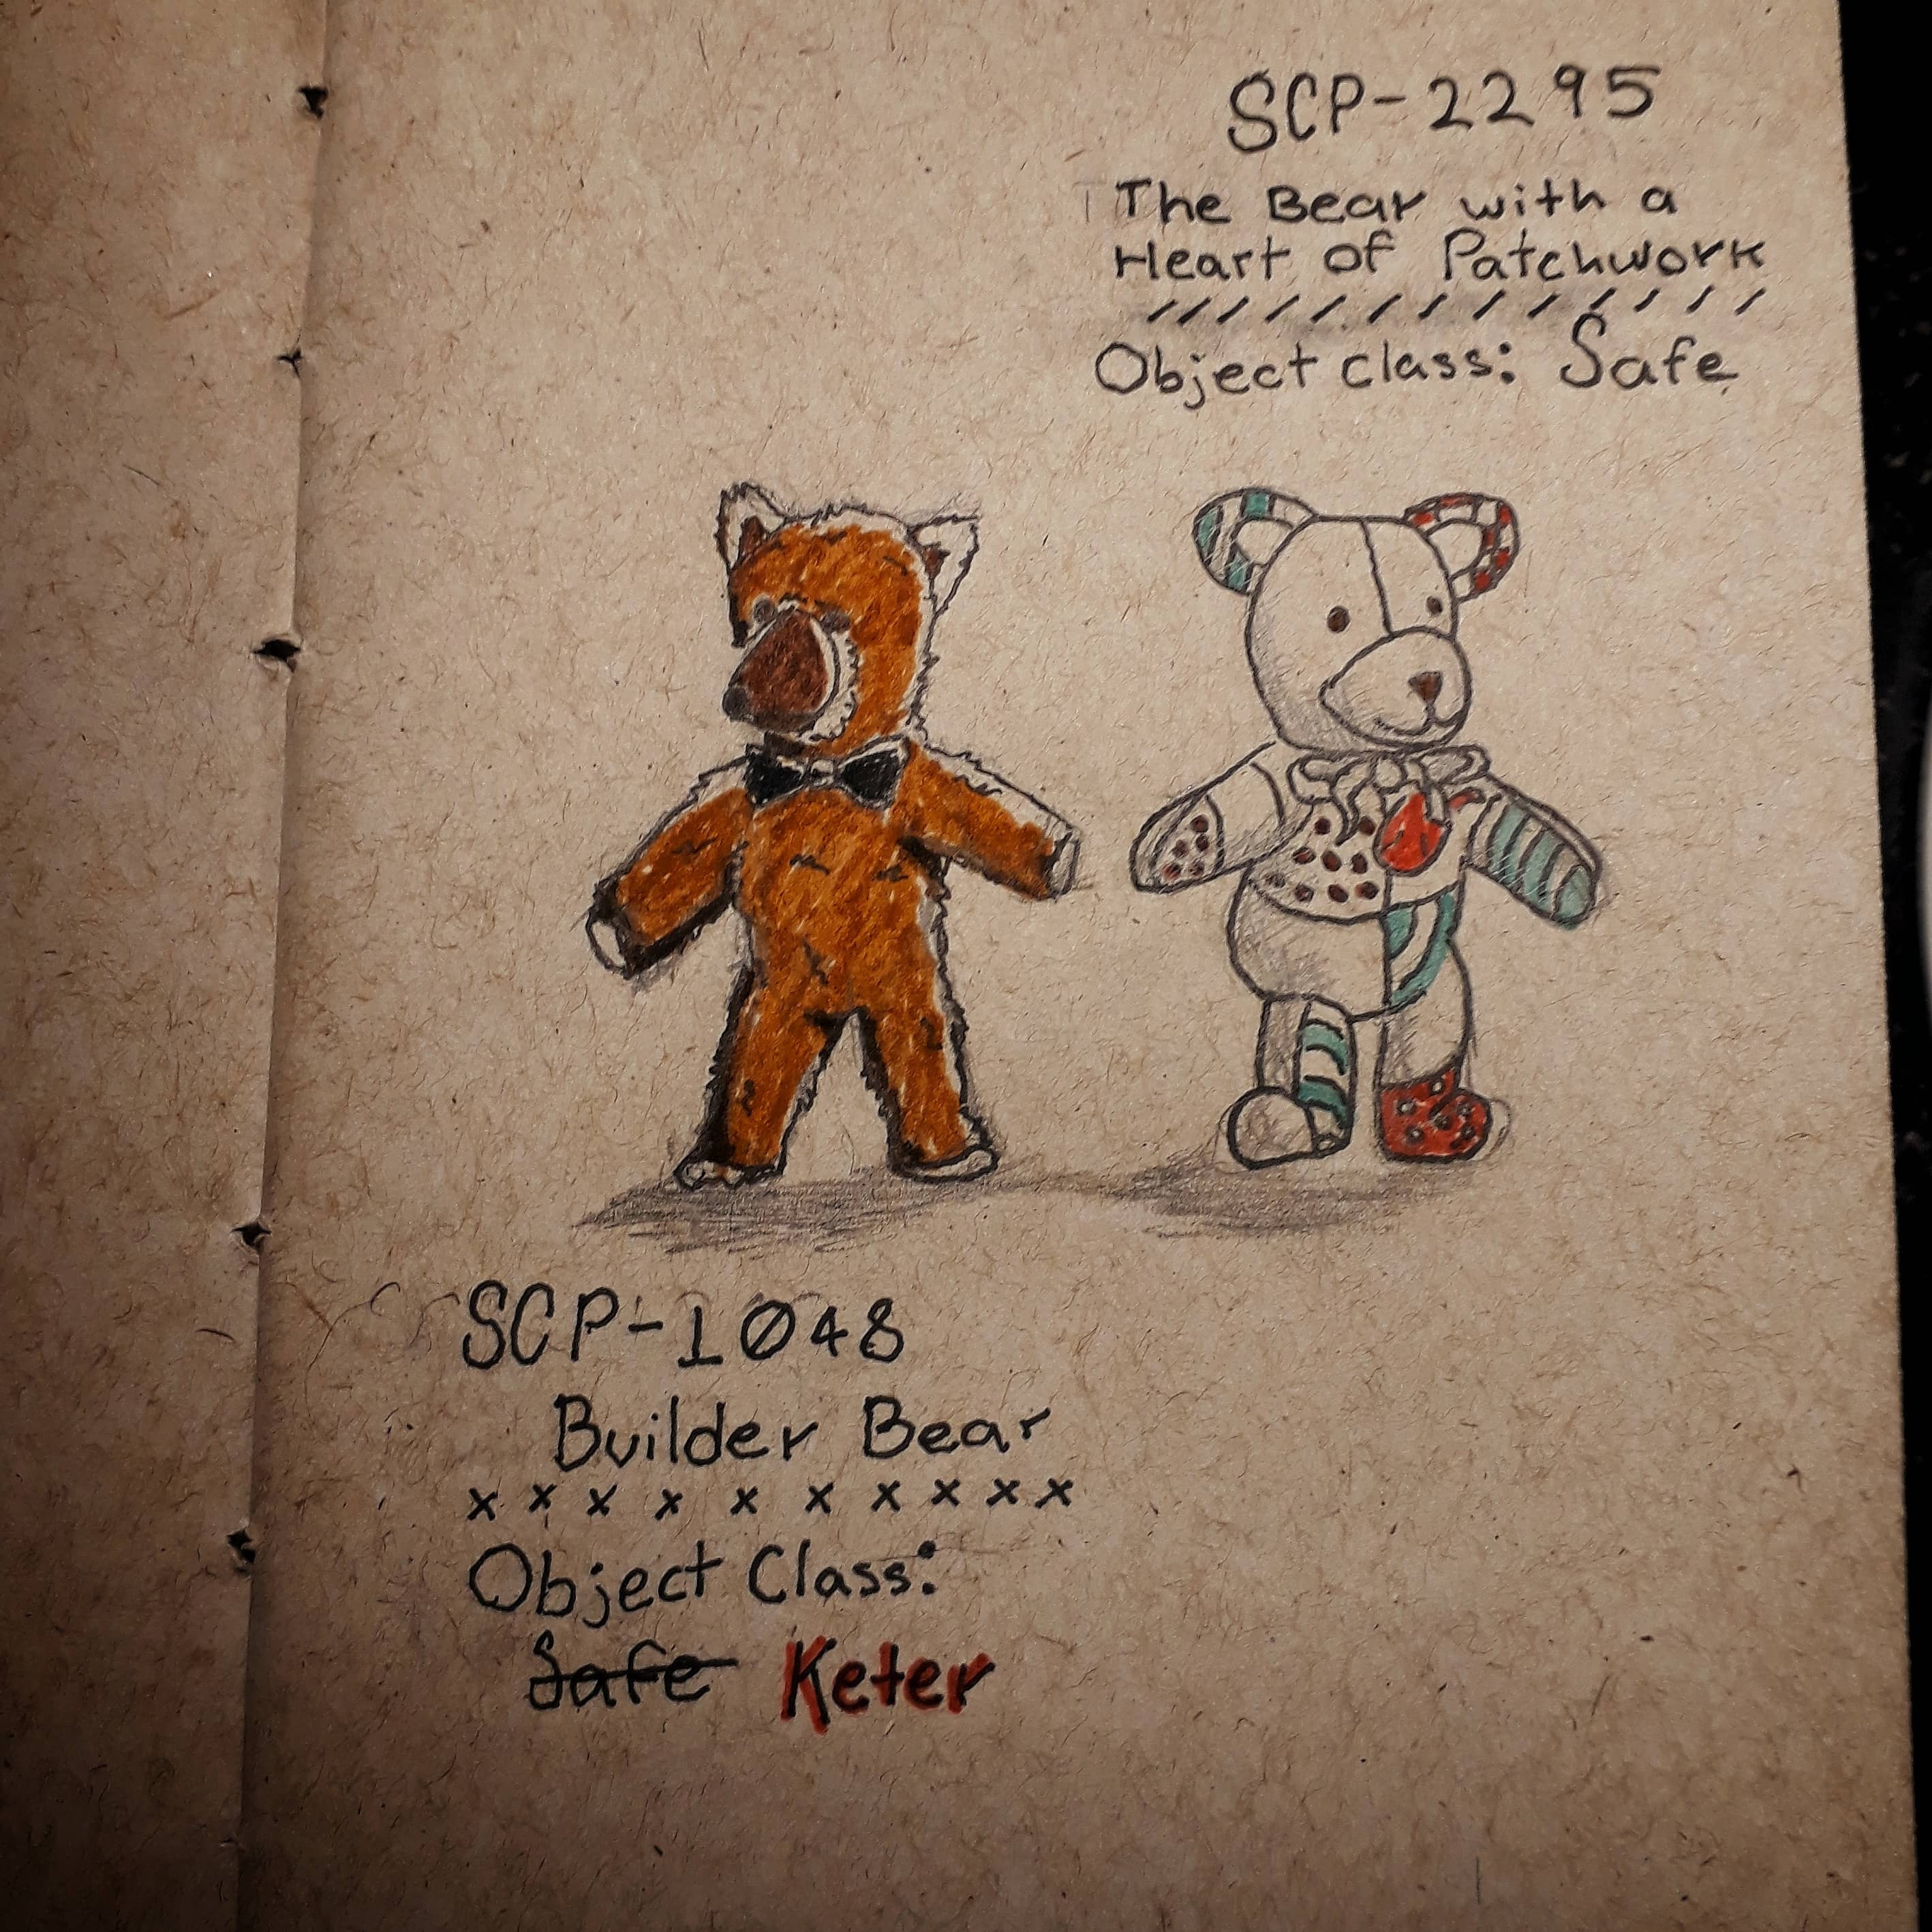 SCP-2295
The Bear with a
Heart of Patchwork
Object class: Safe
SCP-1048
Builder Bear
x x x x x x x x x x
Object Class:
Safe Keter